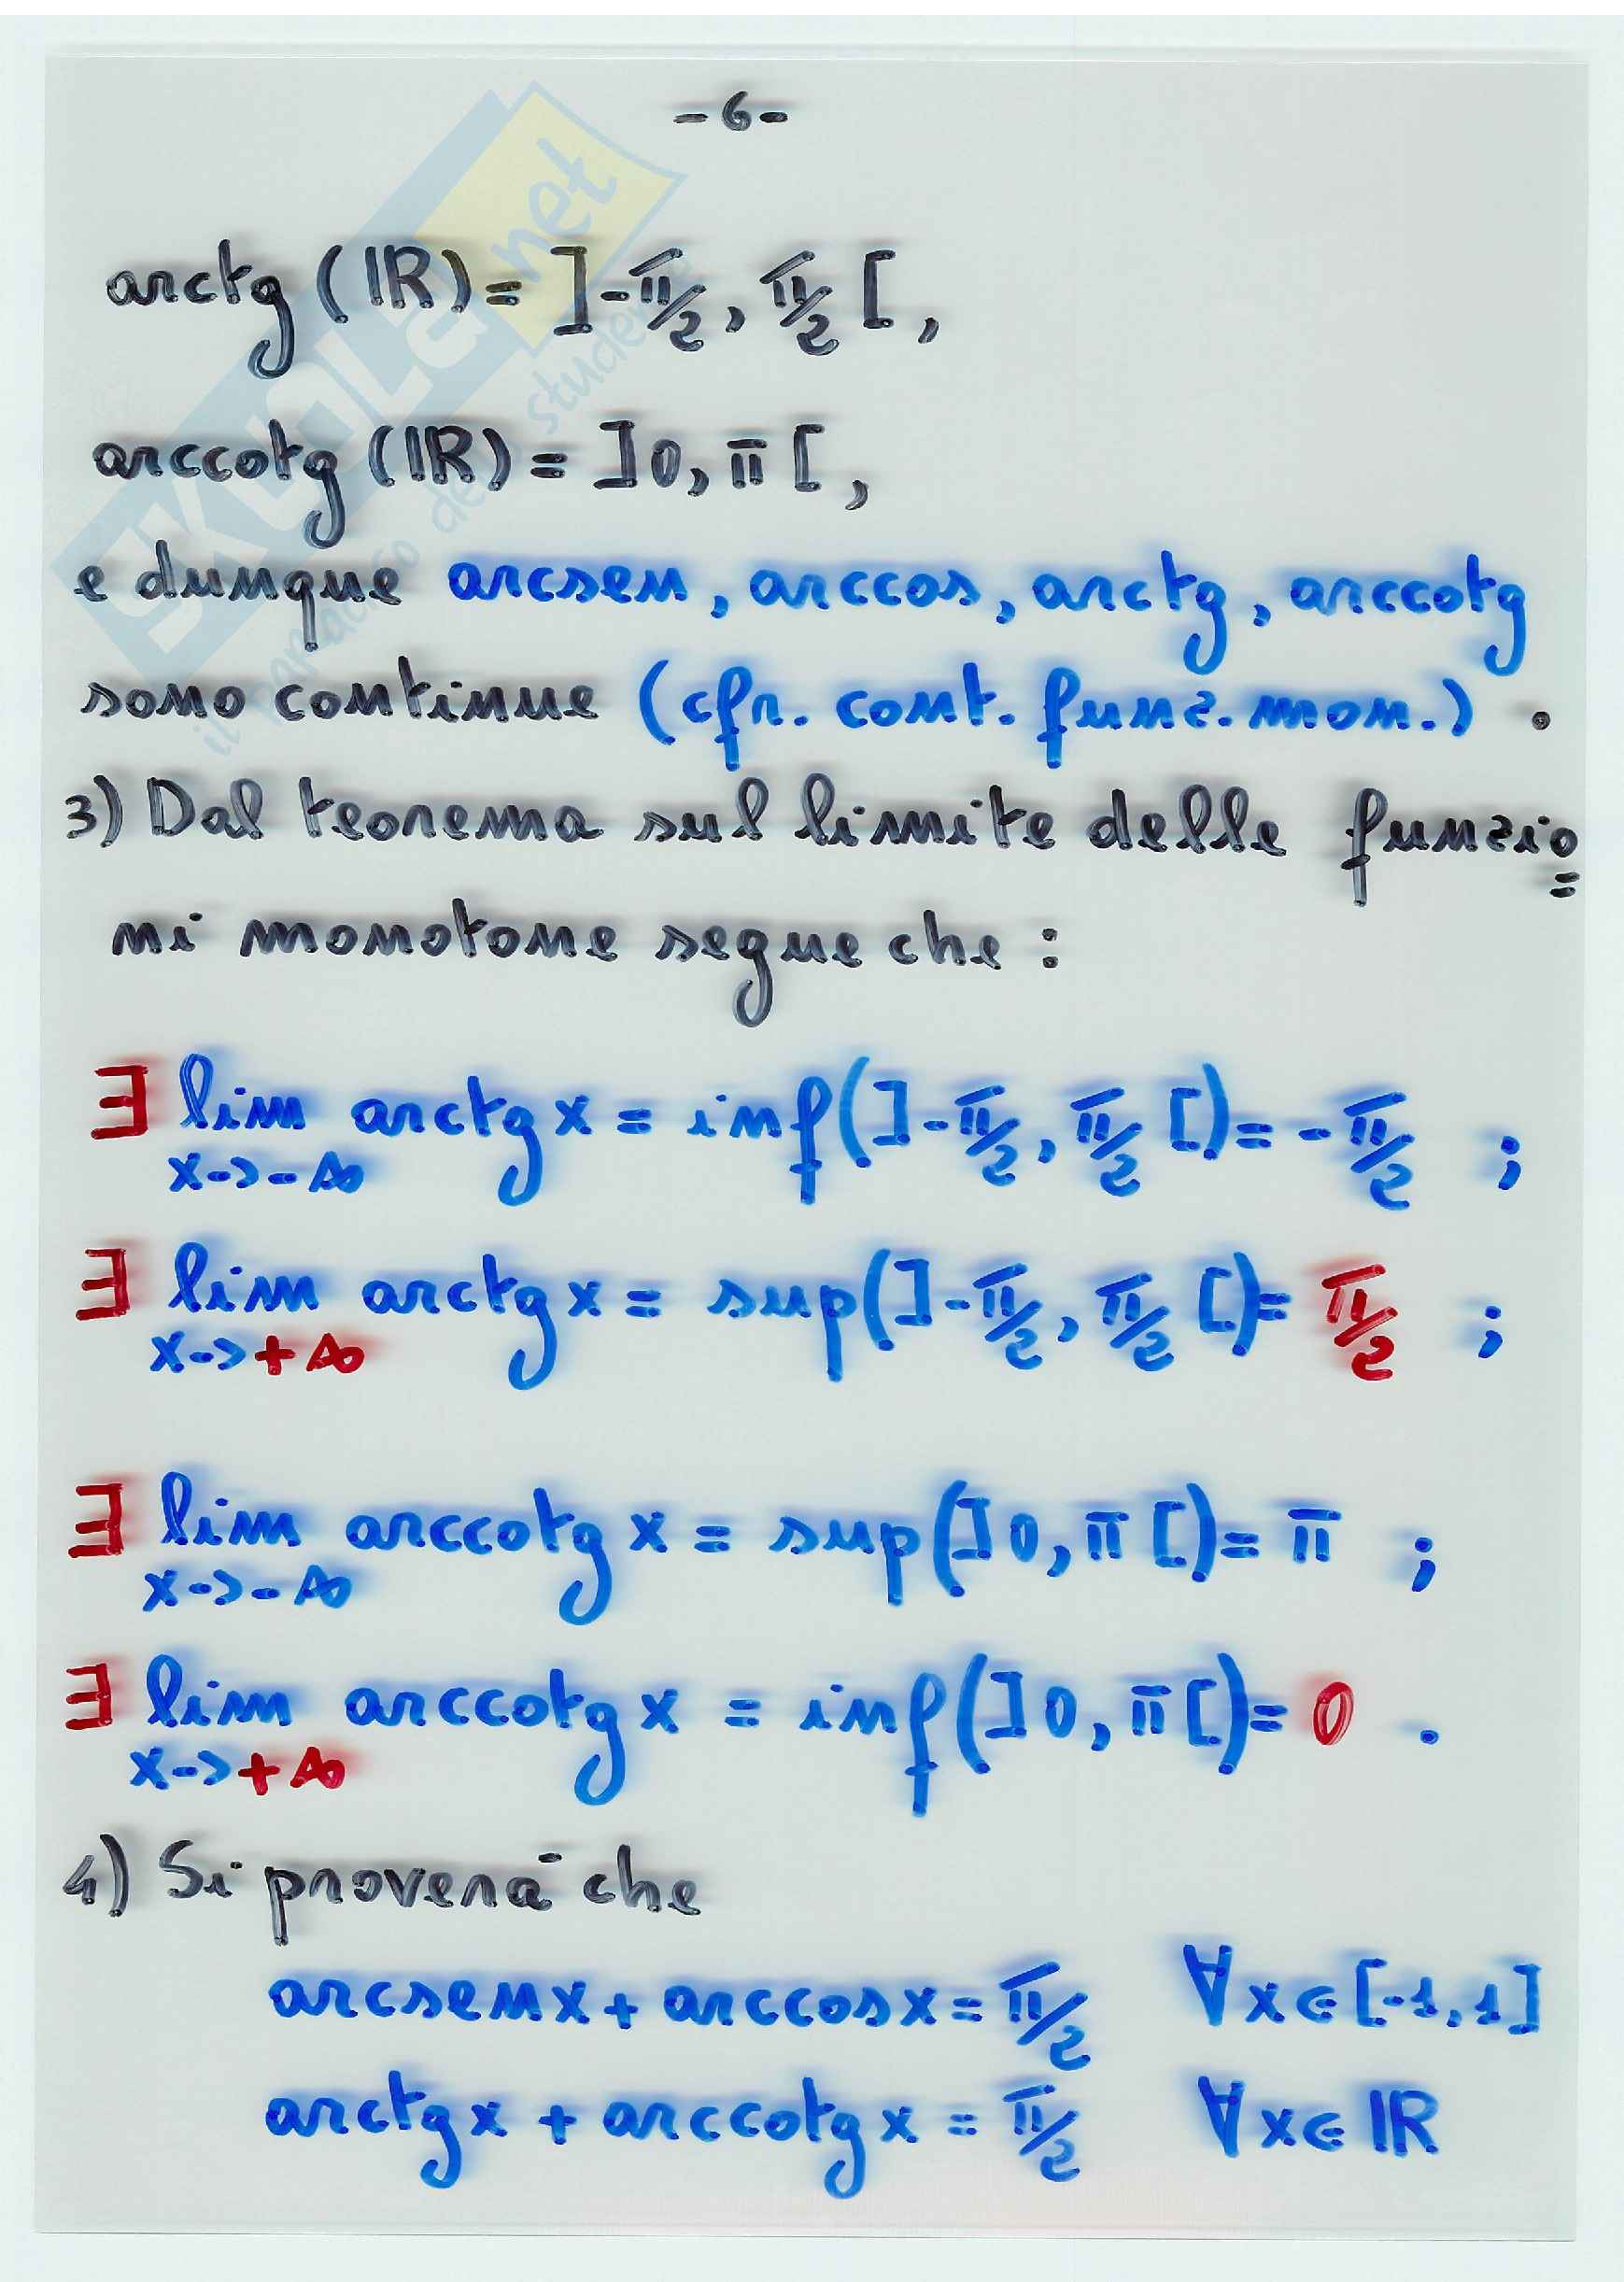 -6-
arctg (ℝ) = ]-π/2, π/2 [,
arccotg (ℝ) = ]0, π [,
e dunque arcsen, arccos, arctg, arccotg
sono continue (cfr. cont. funz. mon.) .
3) Dal teorema sul limite delle funzio=
ni monotone segue che :
∃ lim arctg x = inf(]-π/2, π/2 [) = -π/2 ;
x->-∞
∃ lim arctg x = sup(]-π/2, π/2 [) = π/2 ;
x->+∞
∃ lim arccotg x = sup(]0, π [) = π ;
x->-∞
∃ lim arccotg x = inf(]0, π [) = 0 .
x->+∞
4) Si proverà che
arcsen x + arccos x = π/2 ∀ x ∈ [-1, 1]
arctg x + arccotg x = π/2 ∀ x ∈ ℝ
skuola.net